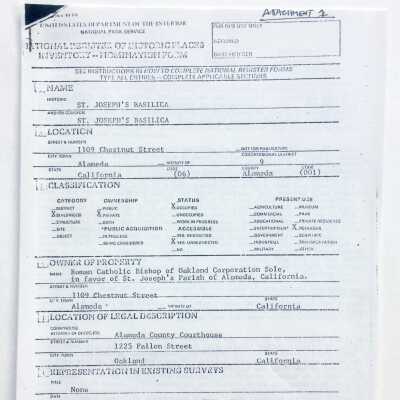 ATTACHMENT 1
UNITED STATES DEPARTMENT OF THE INTERIOR
NATIONAL PARK SERVICE
NATIONAL REGISTER OF HISTORIC PLACES
INVENTORY -- NOMINATION FORM
FOR NPS USE ONLY
RECEIVED
DATE ENTERED
SEE INSTRUCTIONS IN HOW TO COMPLETE NATIONAL REGISTER FORMS
TYPE ALL ENTRIES -- COMPLETE APPLICABLE SECTIONS
NAME
HISTORIC
ST. JOSEPH'S BASILICA
AND/OR COMMON
ST. JOSEPH'S BASILICA
LOCATION
STREET & NUMBER
1109 Chestnut Street
NOT FOR PUBLICATION
CITY, TOWN
CONGRESSIONAL DISTRICT
Alameda
VICINITY OF
9
STATE
CODE
COUNTY
CODE
California
(06)
Alameda
(001)
CLASSIFICATION
CATEGORY
OWNERSHIP
STATUS
PRESENT USE
DISTRICT
PUBLIC
X OCCUPIED
AGRICULTURE
MUSEUM
X BUILDING(S)
X PRIVATE
UNOCCUPIED
COMMERCIAL
PARK
STRUCTURE
BOTH
WORK IN PROGRESS
EDUCATIONAL
PRIVATE RESIDENCE
SITE
PUBLIC ACQUISITION
ACCESSIBLE
ENTERTAINMENT
X RELIGIOUS
OBJECT
IN PROCESS
YES: RESTRICTED
GOVERNMENT
SCIENTIFIC
BEING CONSIDERED
X YES: UNRESTRICTED
INDUSTRIAL
TRANSPORTATION
NO
MILITARY
OTHER
OWNER OF PROPERTY
NAME
Roman Catholic Bishop of Oakland Corporation Sole,
in favor of St. Joseph's Parish of Alameda, California.
STREET & NUMBER
1109 Chestnut Street
CITY, TOWN
STATE
Alameda
VICINITY OF
California
LOCATION OF LEGAL DESCRIPTION
COURTHOUSE,
REGISTRY OF DEEDS, ETC.
Alameda County Courthouse
STREET & NUMBER
1225 Fallon Street
CITY, TOWN
STATE
Oakland
California
REPRESENTATION IN EXISTING SURVEYS
TITLE
None
DATE